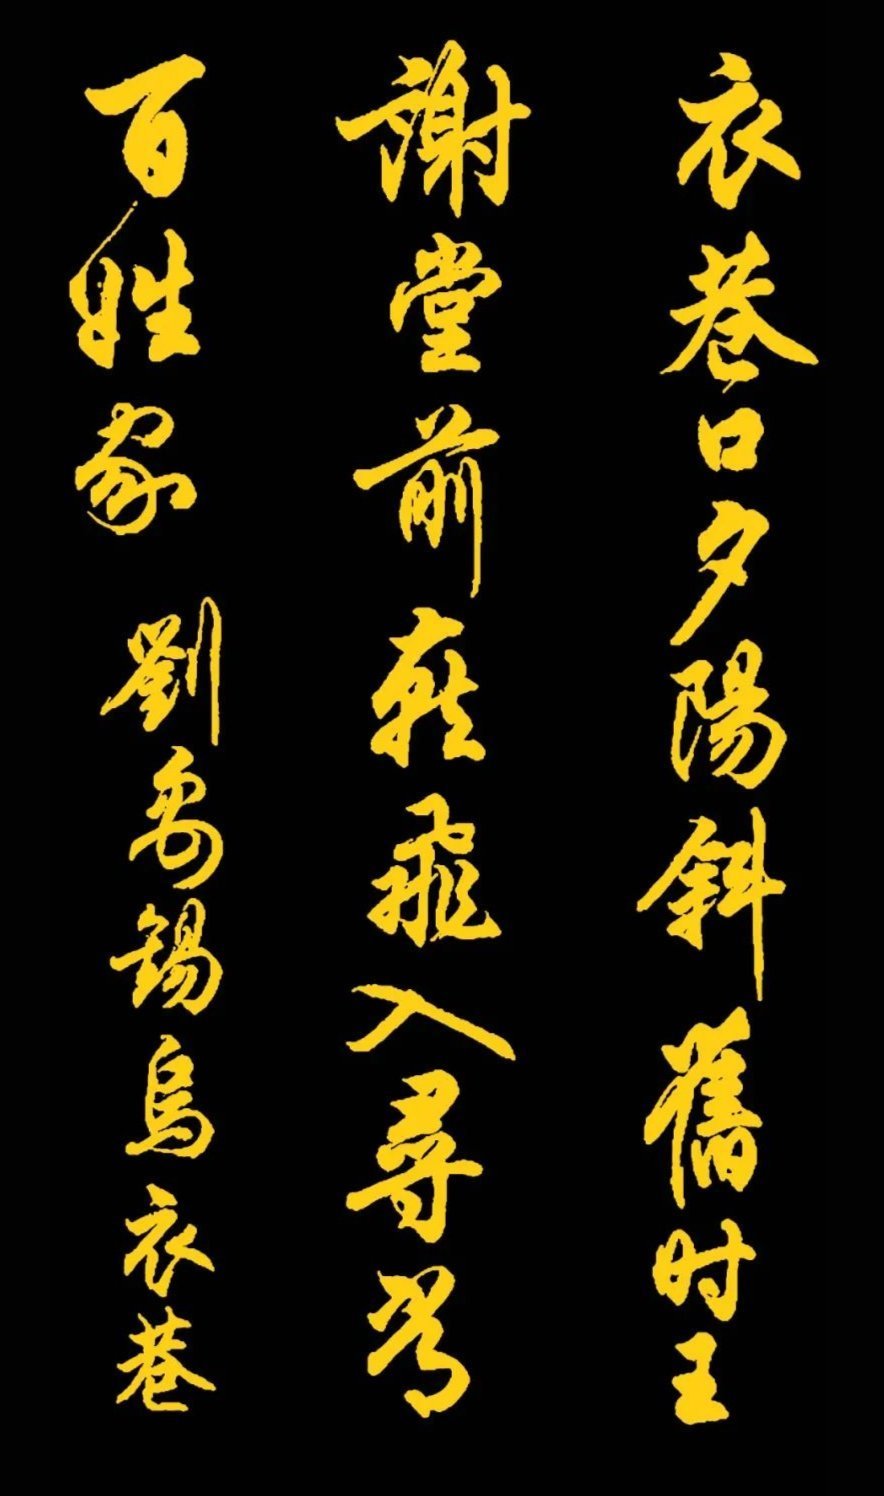 衣巷口夕陽斜舊时王
謝堂前燕飛入尋常
百姓家 劉禹錫烏衣巷